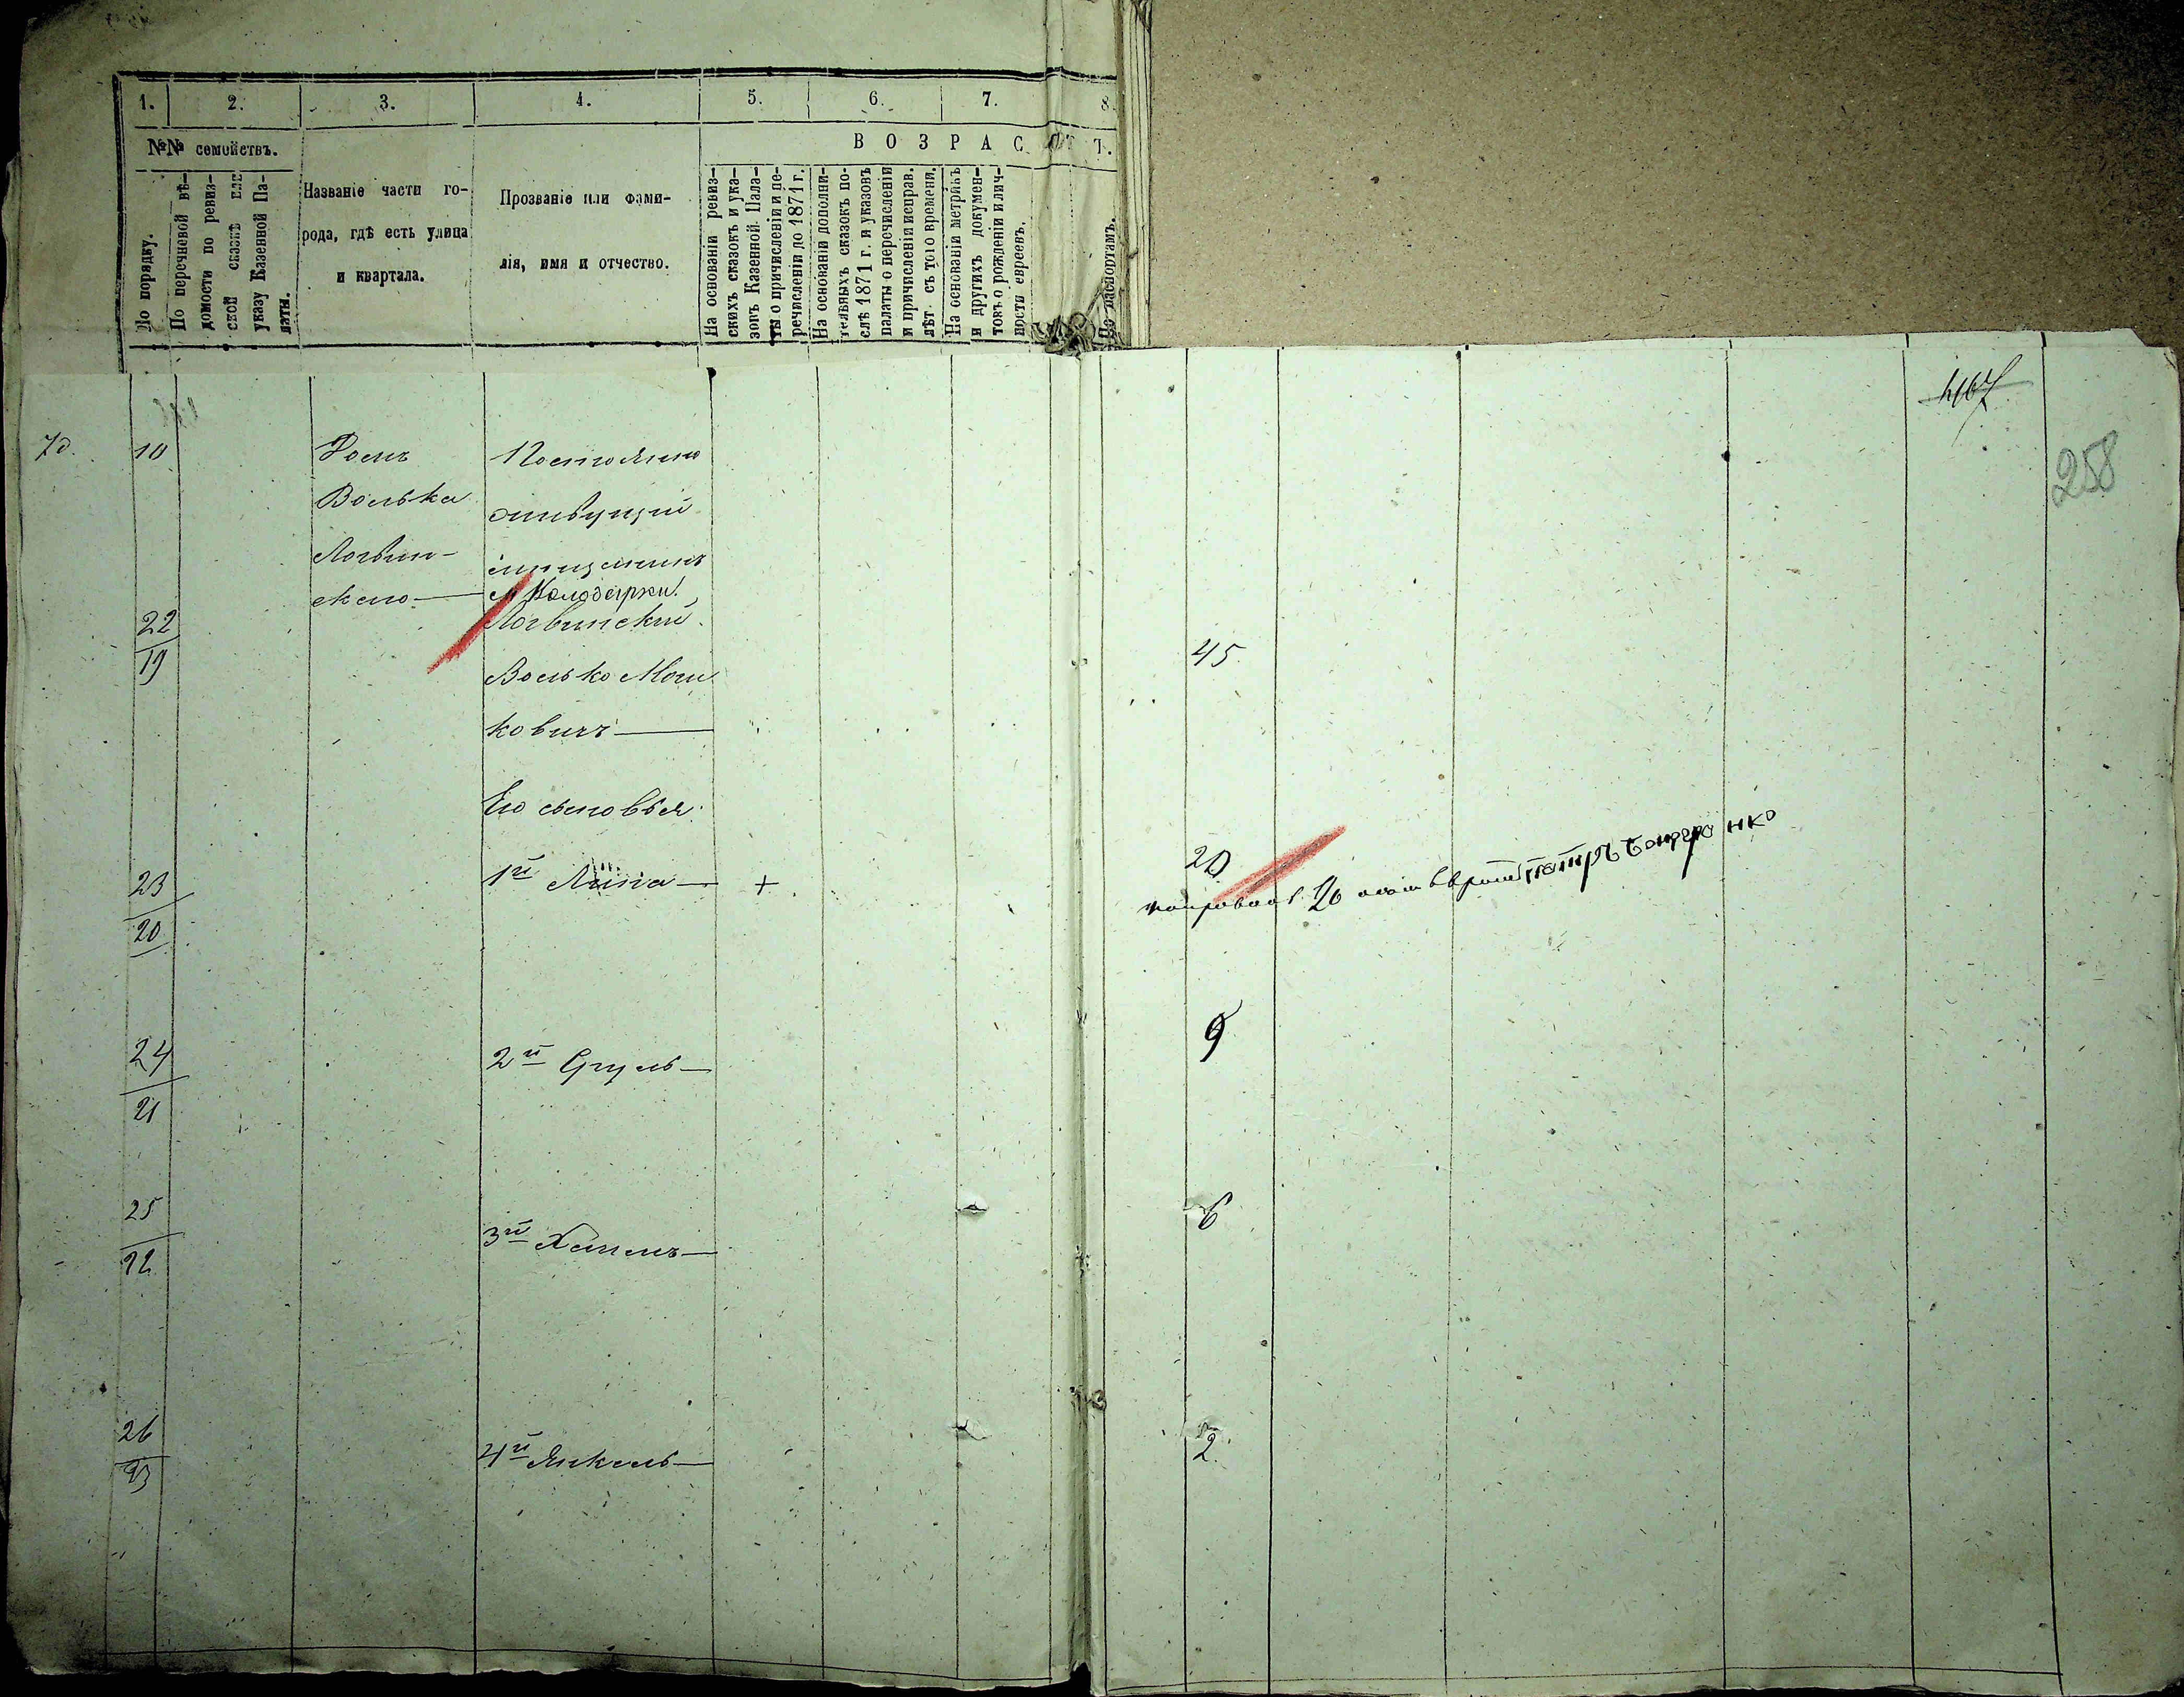 1. 2. 3. 4. 5. 6. 7. 8.
№№ семействъ.
По порядку.
По перечневой вѣ-
домости по ревиз-
ской сказкѣ или
указу Казенной Па-
латы.
Названіе части го-
рода, гдѣ есть улица
и квартала.
Прозваніе или фами-
лія, имя и отчество.
ВОЗРАСТ
Т.
На основаніи ревиз-
скихъ сказокъ и ука-
зовъ Казенной Пала-
ты о причисленіи и пе-
речисленіи до 1871 г.
На основаніи дополни-
тельныхъ сказокъ по-
слѣ 1871 г. и указовъ
палаты о перечисленіи
и причисленіи исправ.
лѣт съ того времени.
На основаніи метрикъ
и другихъ докумен-
товъ о рожденіи и лич-
ности евреевъ.
По паспортамъ.
467
258
7д. 10
Домъ
Волька
Логвин-
скаго
Постоянно
живущій
мѣщанинъ
м Колодерки
22
19
Логвинскій
Волько Мош
ковичъ
45
Его сыновья:
23
20
1й Липа +
20
24
21
2й Сруль
9
25
22
3й Хаимъ
6
26
23
4й Янкель
2